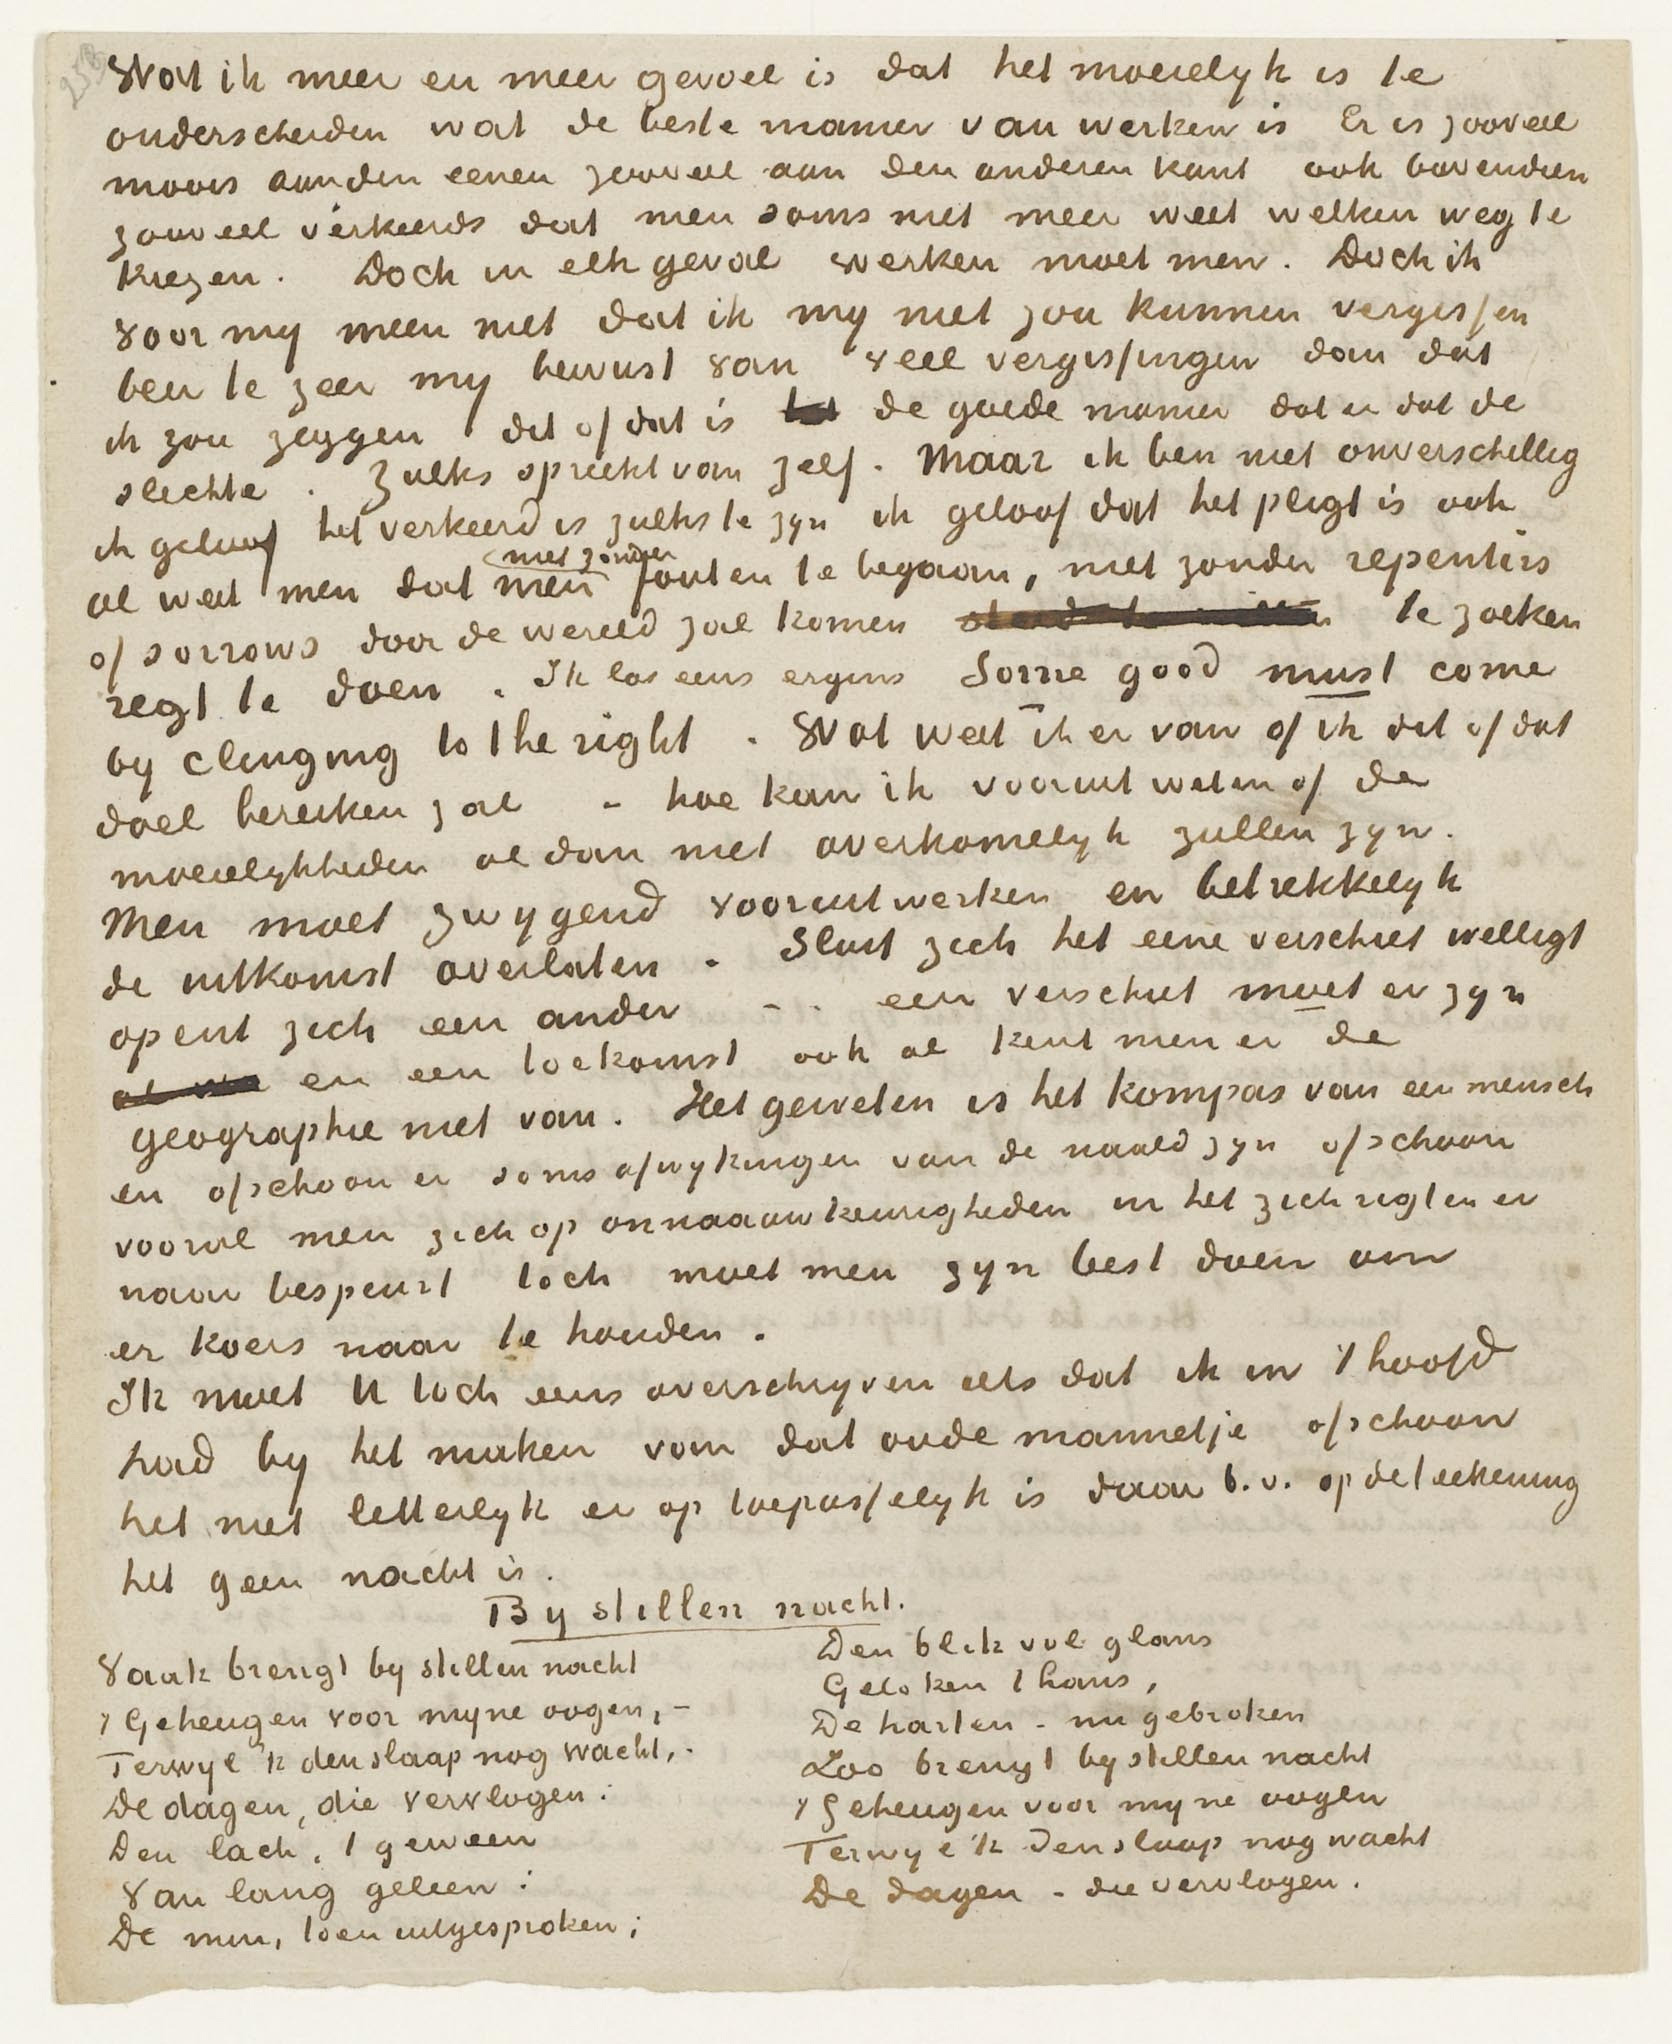 Wat ik meer en meer gevoel is dat het moeielyk is te
onderscheiden wat de beste manier van werken is Er is zooveel
moois aan den eenen zooveel aan den anderen kant ook bovendien
zooveel verkeerds dat men soms niet meer weet welken weg te
kiezen. Doch in elk geval werken moet men. Doch ik
voor my meen niet dat ik my niet zou kunnen vergissen
ben te zeer my bewust van veel vergissingen dan dat
ik zou zeggen dit of dat is de goede manier dat er dat de
slechte. Zulks spreekt van zelf. Maar ik ben niet onverschillig
ik geloof het verkeerd is zulks te zyn ik geloof dat het pligt is ook
niet zonder
al weet men dat men fouten te begaan, niet zonder repentirs
of sorrows door de wereld zal komen te zoeken
regt te doen. Ik las eens ergens Some good must come
by clinging to the right. Wat weet ik er van of ik dit of dat
doel bereiken zal – hoe kan ik vooruit weten of de
moeielykheden al dan niet overkomelyk zullen zyn.
Men moet zwygend vooruit werken en betrekkelyk
de uitkomst overlaten. Sluit zich het eene verschiet welligt
opent zich een ander – .. een verschiet moet er zyn
en een toekomst ook al kent men er de
geographie niet van. Het geweten is het kompas van een mensch
en ofschoon er soms afwykingen van de naald zyn ofschoon
vooral men zich op onnaauwkeurigheden in het zich rigten er
naar bespeurt toch moet men zyn best doen om
er koers naar te houden.
Ik moet U toch eens overschryven iets dat ik in 't hoofd
had by het maken van dat oude mannetje ofschoon
het niet letterlyk er op toepasselyk is daar b.v. op de teekening
het geen nacht is.
By stillen nacht.
Vaak brengt by stillen nacht
't Geheugen voor myne oogen, –
Terwyl 'k den slaap nog wacht, –
De dagen, die vervlogen:
Den lach, 't geween
Van lang geleen:
De min, toen uitgesproken;
Den blik vol glans
Geloken thans,
De harten – nu gebroken
Zoo brengt by stillen nacht
't Geheugen voor myne oogen
Terwyl 'k den slaap nog wacht
De dagen – die vervlogen.